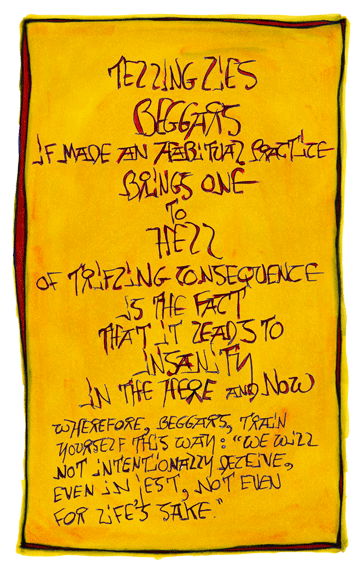 TELLING LIES
BEGGARS
IF MADE AN HABITUAL PRACTICE
BRINGS ONE
TO
HELL
OF TRIFLING CONSEQUENCE
IS THE FACT
THAT IT LEADS TO
INSANITY
IN THE HERE AND NOW
WHEREFORE, BEGGARS, TRAIN
YOURSELF THIS WAY: "WE WILL
NOT INTENTIONALLY DECEIVE,
EVEN IN JEST, NOT EVEN
FOR LIFE'S SAKE."